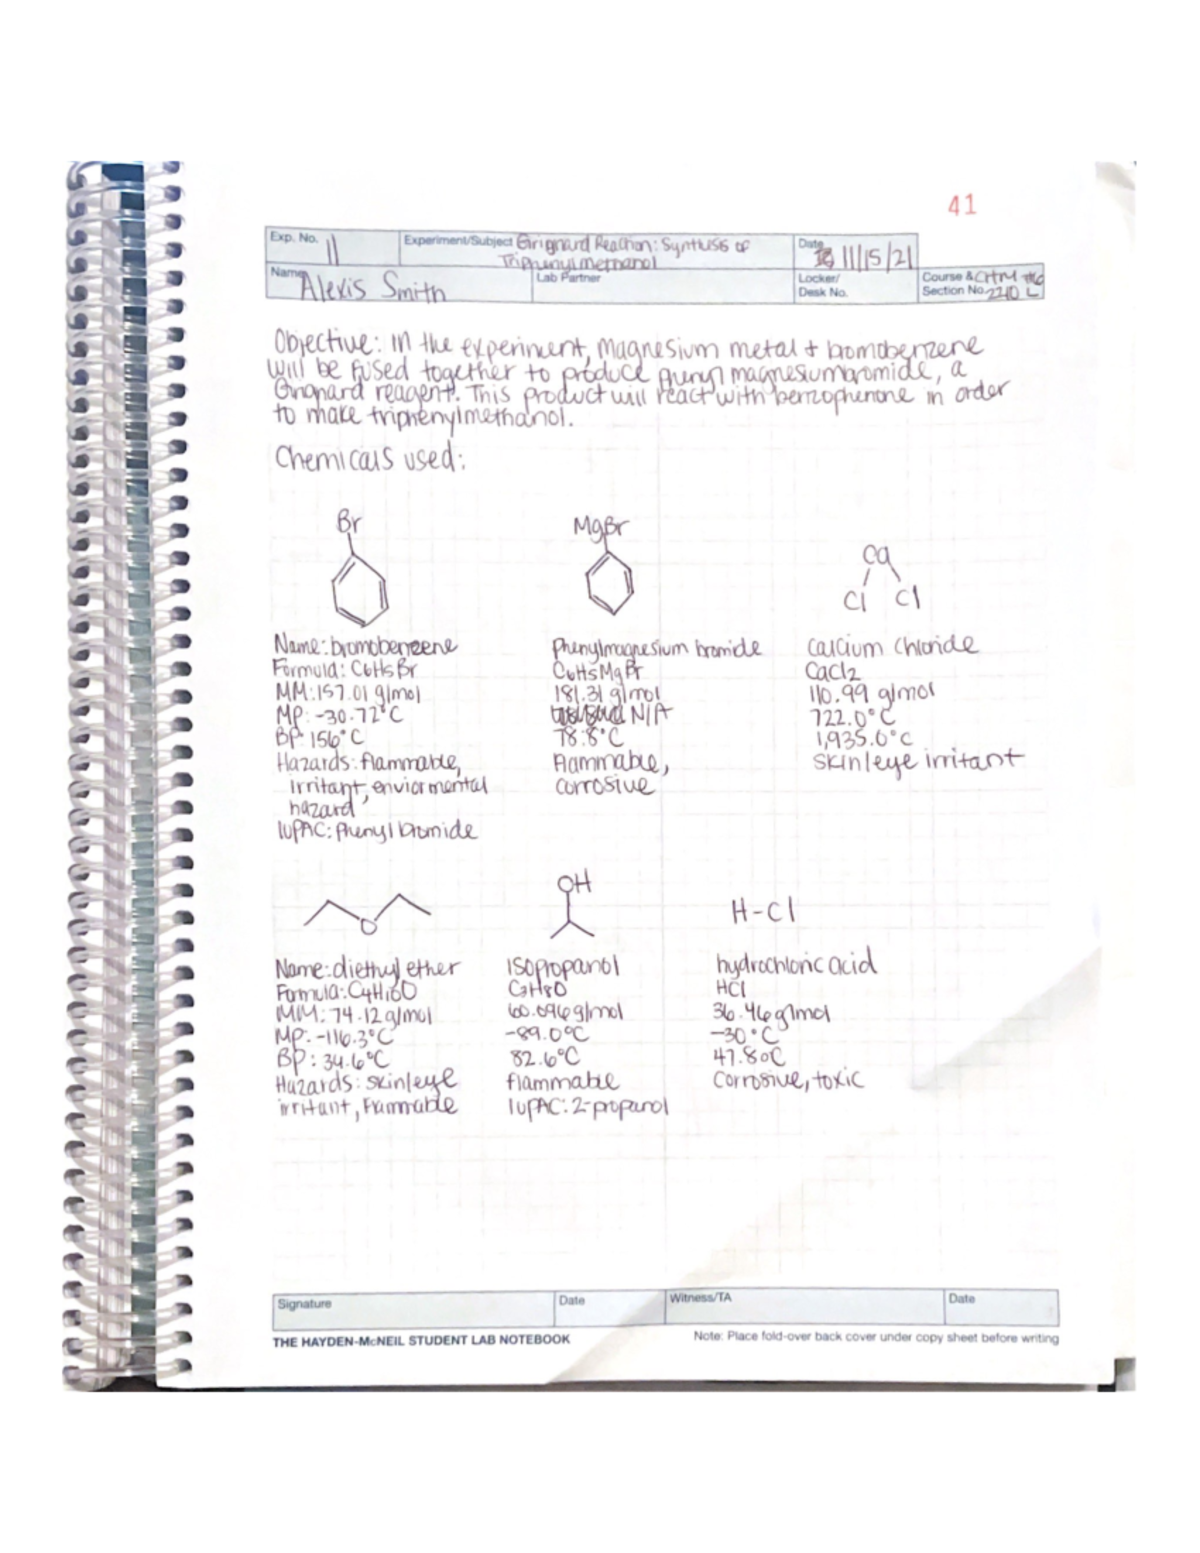 41
Exp. No. 11
Experiment/Subject Grignard Reaction: Synthesis of
Triphenylmethanol
Date 11/15/21
Name Alexis Smith
Lab Partner
Locker/
Desk No.
Course & CHM
Section No. 2210 L
Objective: In the experiment, magnesium metal + bromobenzene
will be fused together to produce phenyl magnesiumbromide, a
Grignard reagent. This product will react with benzophenone in order
to make triphenylmethanol.
Chemicals used:
Br
MgBr
Ca
Cl Cl
Name: bromobenzene
Formula: C6H5Br
MM: 157.01 g/mol
MP: -30.72°C
BP: 156°C
Hazards: flammable,
irritant, enviormental
hazard
IUPAC: Phenyl bromide
Phenylmagnesium bromide
C6H5MgBr
181.31 g/mol
N/A
78.8°C
Flammable,
corrosive
Calcium Chloride
CaCl2
110.99 g/mol
722.0°C
1,935.0°C
skin/eye irritant
O
OH
H-Cl
Name: diethyl ether
Formula: C4H10O
MM: 74.12 g/mol
MP: -116.3°C
BP: 34.6°C
Hazards: skin/eye
irritant, Flammable
Isopropanol
C3H8O
60.096 g/mol
-89.0°C
82.6°C
flammable
IUPAC: 2-propanol
hydrochloric acid
HCl
36.46 g/mol
-30°C
47.80C
Corrosive, toxic
Signature
Date
Witness/TA
Date
THE HAYDEN-McNEIL STUDENT LAB NOTEBOOK
Note: Place fold-over back cover under copy sheet before writing